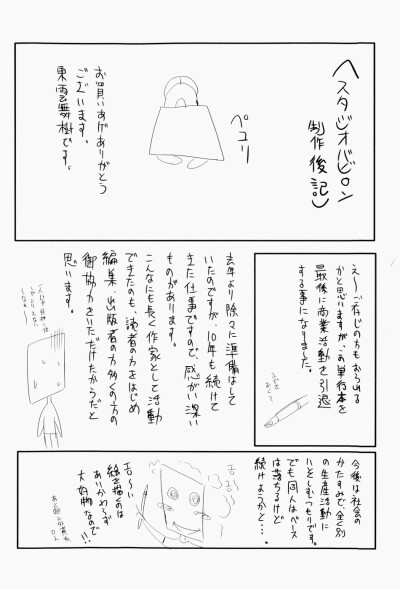 へスタジオバビロン
制作後記〉
ペコリ
お買いあげありがとう
ございます。
東雲舞樹です。
え〜ご存じの方もおられる
かと思いますが、この単行本を
最後に商業活動を引退
する事になりました。
去年より除々に準備はして
いたのですが、10年も続けて
きた仕事ですので、感がい深い
ものがあります。
こんなにも長く作家として活動
できたのも、読者の方をはじめ
編集、出版者の方多くの方の
御協力をいただけたからだと
思います。
今後は社会の
かたすみで、全く別
の生産活動に
いそしむつもりです。
でも同人はペース
は落ちるけど
続けようかと…。
エロ〜い
絵を描くのは
あいかわらず
大好物なので
!!